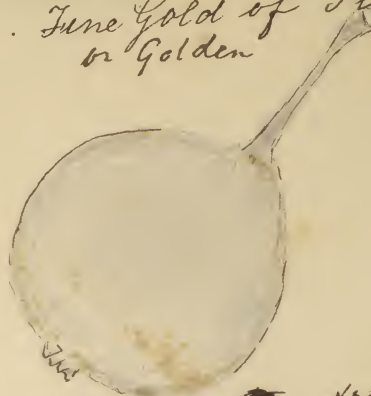 . Fine Gold of
or Golden